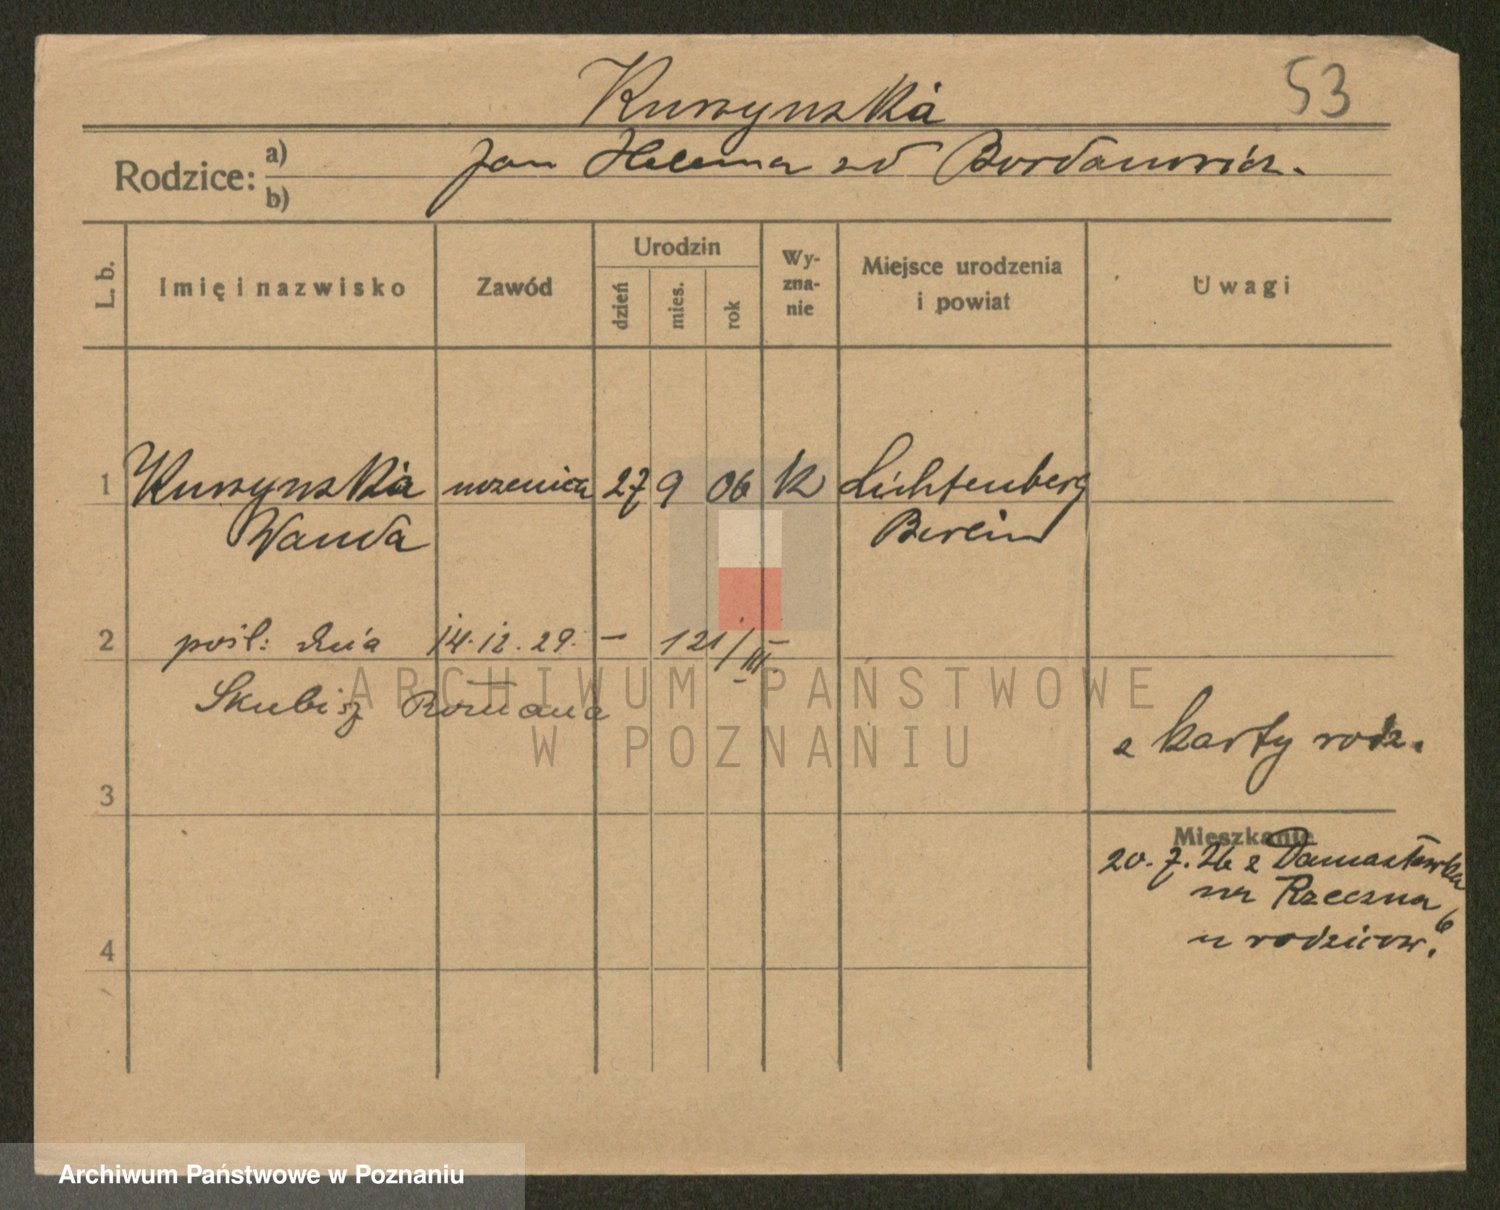 53
Kurzynska
Rodzice: a) b)
Jan Helena zd Bordanowicz.
L. b.
Imię i nazwisko
Zawód
Urodzin
dzień
mies.
rok
Wy-
zna-
nie
Miejsce urodzenia
i powiat
Uwagi
1 Kurzynska uczenica 27 9 06 k Lichtenberg
Wanda Berlin
2 pośl: dnia 14.12.29. – 121/III –
Skubisz Romana
ARCHIWUM PAŃSTWOWE
W POZNANIU
z karty rodz.
3
Mieszkanie
20.7.26 z Damasławka
na Rzeczna 6
u rodzicow.
4
Archiwum Państwowe w Poznaniu